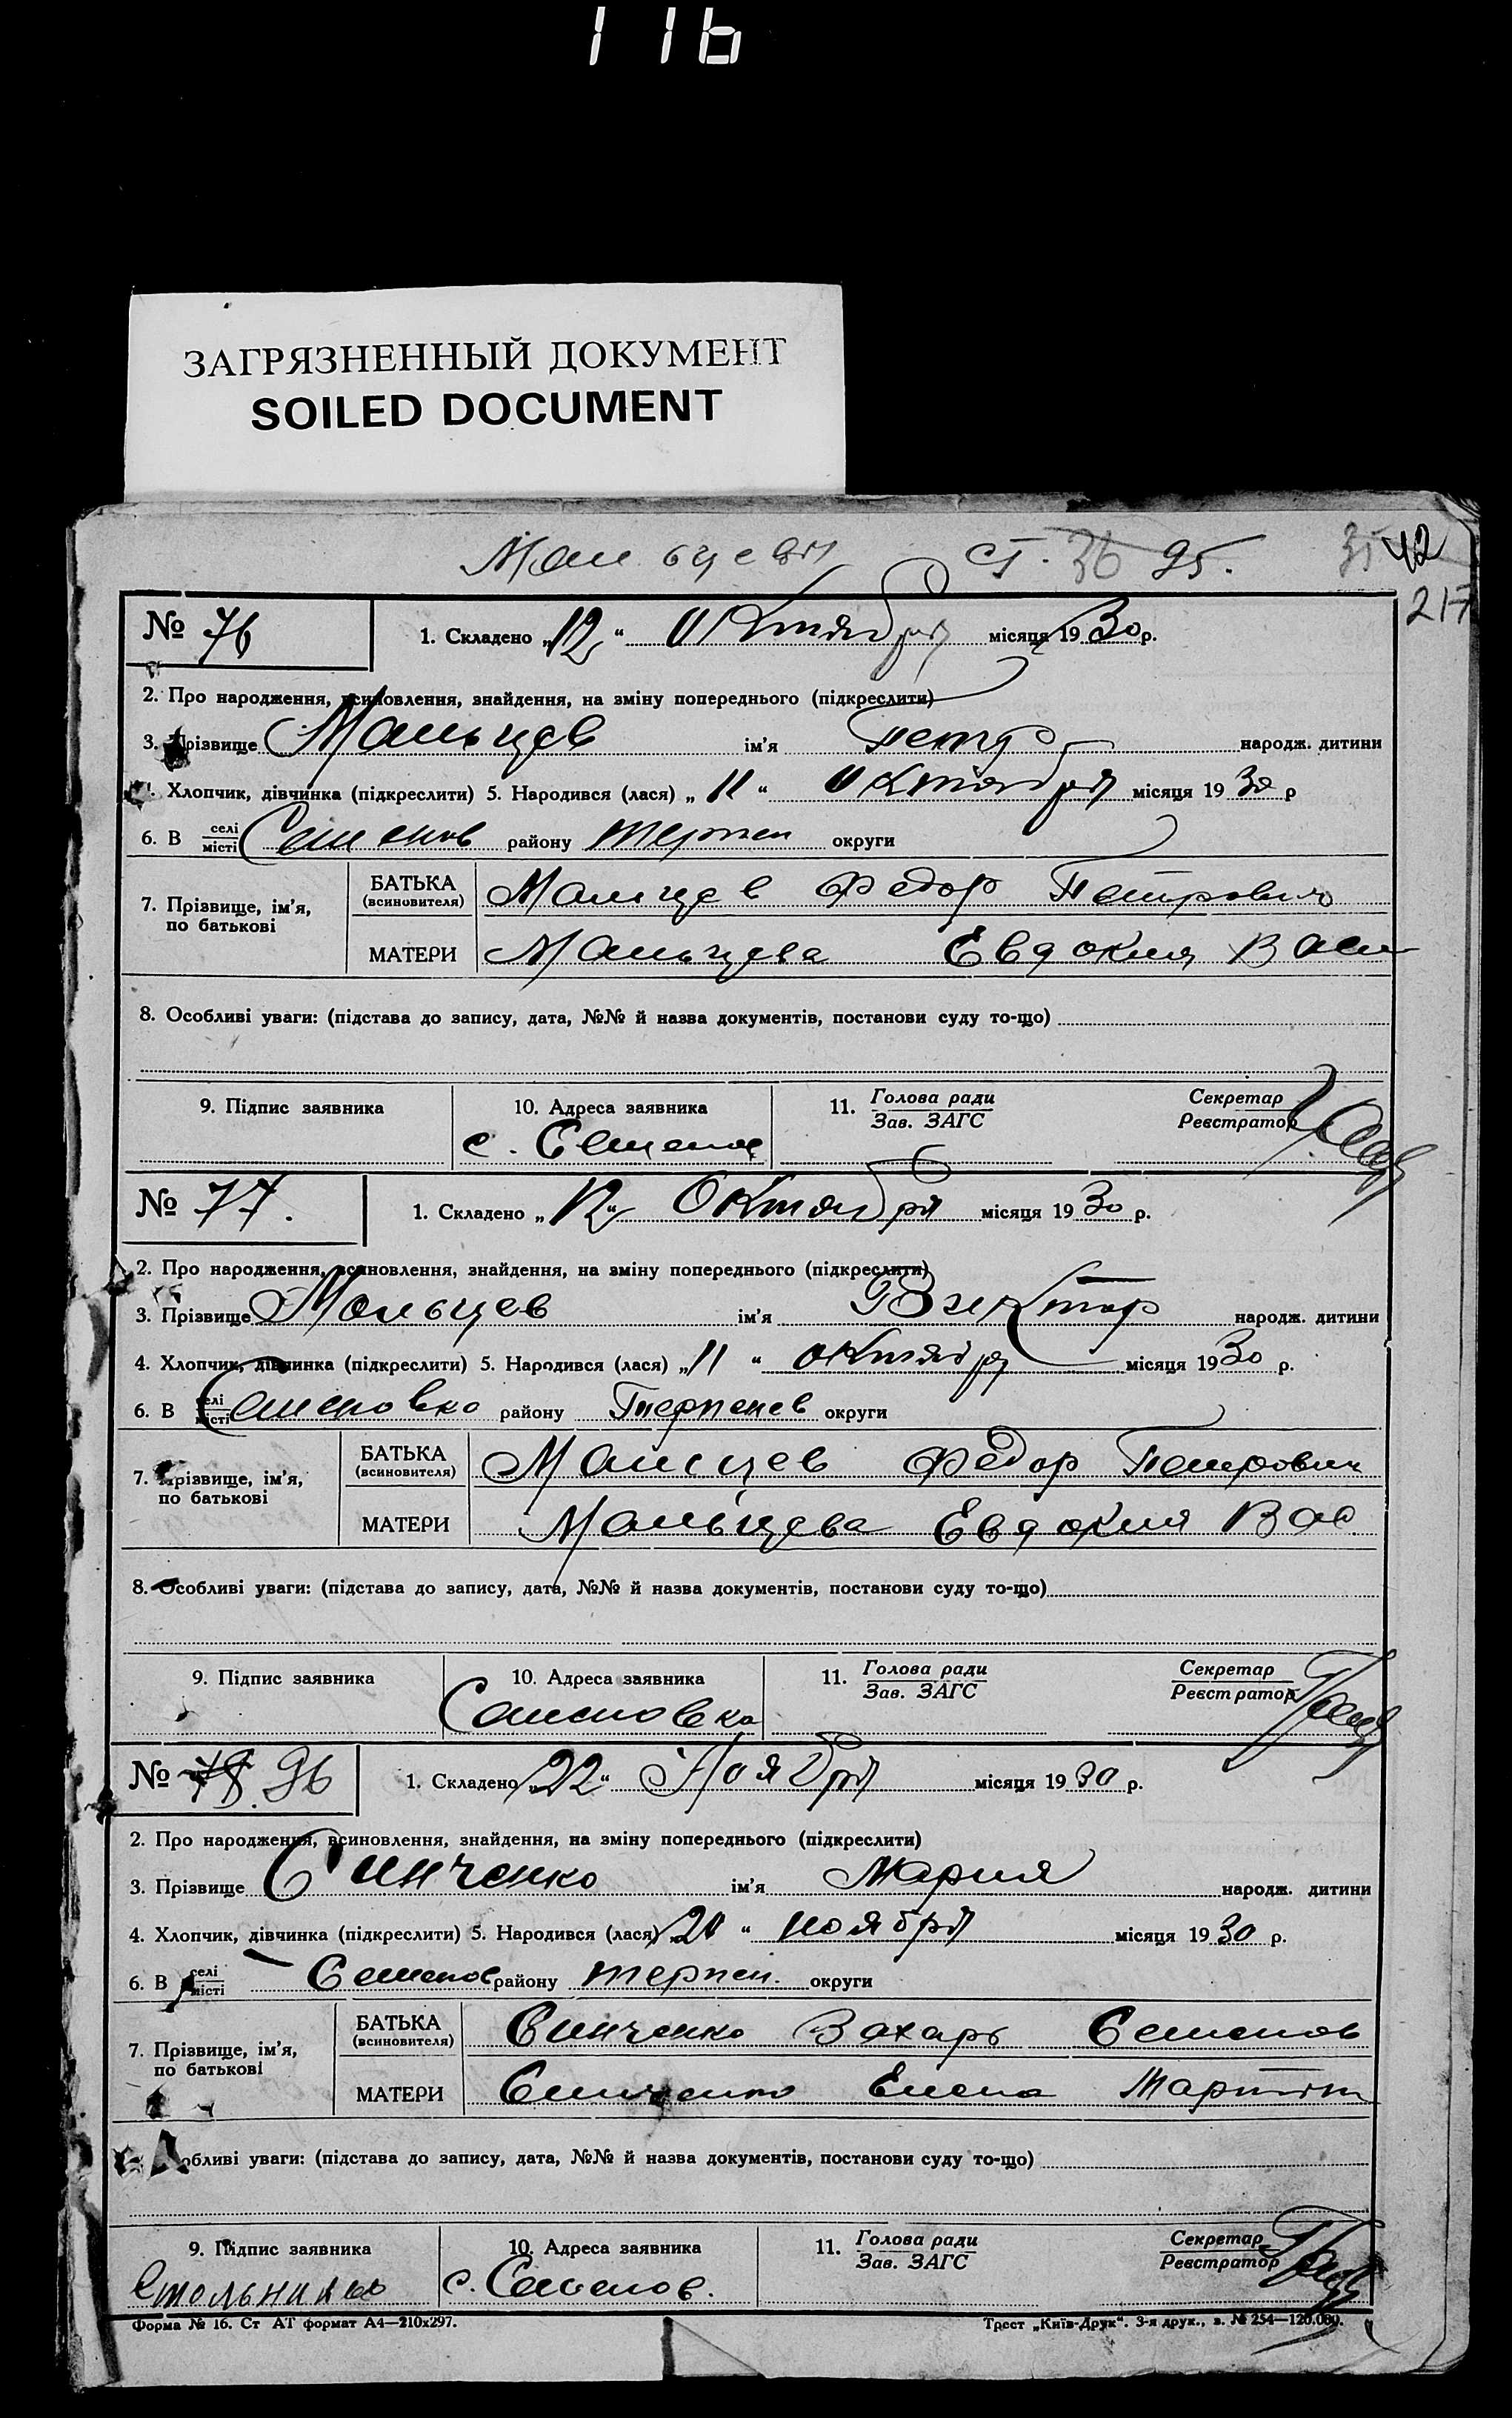 116
ЗАГРЯЗНЕННЫЙ ДОКУМЕНТ
SOILED DOCUMENT
ст. 36 95. 35 42
217
№ 76 1. Складено „12“ Октября місяця 1930 р.
2. Про народження, всиновлення, знайдення, на зміну попереднього (підкреслити)
3. Прізвище Мальцев ім'я Петр народж. дитини
4. Хлопчик, дівчинка (підкреслити) 5. Народився (лася) „11“ Октября місяця 1930 р
6. В селі/місті Семенов району Терпен округи
7. Прізвище, ім'я, по батькові
БАТЬКА (всиновителя) Мальцев Федор Петрович
МАТЕРИ Мальцева Евдокия Васи
8. Особливі уваги: (підстава до запису, дата, №№ й назва документів, постанови суду то-що)
9. Підпис заявника 10. Адреса заявника 11. Голова ради/Зав. ЗАГС Секретар/Реєстратор
с. Семенов
№ 77. 1. Складено „12“ Октября місяця 1930 р.
2. Про народження, всиновлення, знайдення, на зміну попереднього (підкреслити)
3. Прізвище Мальцев ім'я народж. дитини
4. Хлопчик, дівчинка (підкреслити) 5. Народився (лася) „11“ октября місяця 1930 р.
6. В селі/місті Семеновка району Терпенев округи
7. Прізвище, ім'я, по батькові
БАТЬКА (всиновителя) Мальцев Федор Петрович
МАТЕРИ Мальцева Евдокия Вас
8. Особливі уваги: (підстава до запису, дата, №№ й назва документів, постанови суду то-що)
9. Підпис заявника 10. Адреса заявника 11. Голова ради/Зав. ЗАГС Секретар/Реєстратор
Семеновка
№ 78. 96 1. Складено „22“ Ноября місяця 1930 р.
2. Про народження, всиновлення, знайдення, на зміну попереднього (підкреслити)
3. Прізвище Синченко ім'я Мария народж. дитини
4. Хлопчик, дівчинка (підкреслити) 5. Народився (лася) „20“ ноября місяця 1930 р.
6. В селі/місті Семенов району Терпен. округи
7. Прізвище, ім'я, по батькові
БАТЬКА (всиновителя) Синченко Захарь Семенов
МАТЕРИ Синченко Елена Мартин
8. Особливі уваги: (підстава до запису, дата, №№ й назва документів, постанови суду то-що)
9. Підпис заявника 10. Адреса заявника 11. Голова ради/Зав. ЗАГС Секретар/Реєстратор
с. Семенов.
Форма № 16. Ст АТ формат А4—210х297. Трест „Київ-Друк“. 3-я друк., з. № 254—120.000.